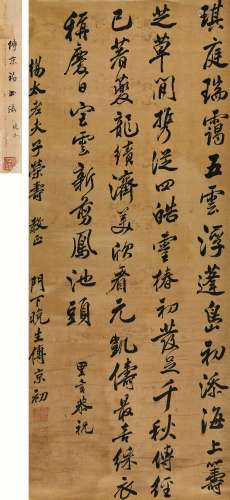 琪庭瑞靄五雲浮蓬島初添海上籌
芝草閒攜從四皓靈椿初發足千秋傳經
已著夔龍績濟美欣看元凱儔最喜綵衣
稱慶日雲新剪鳳池頭 里言恭祝
楊太老夫子榮壽 敬正 門下晚生傅京初
傅京初